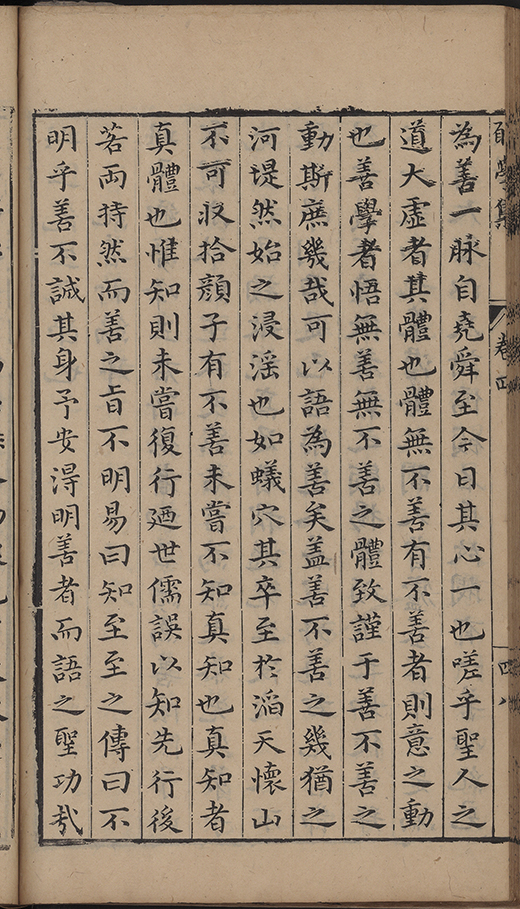 學集
卷四
四八
為善一脉自堯舜至今日其心一也嗟乎聖人之
道大虛者其體也體無不善有不善者則意之動
也善學者悟無善無不善之體致謹于善不善之
動斯庶幾哉可以語為善矣盖善不善之幾猶之
河堤然始之浸滛也如蟻穴其卒至於滔天懷山
不可收拾顔子有不善未嘗不知真知也真知者
真體也惟知則未嘗復行廼世儒誤以知先行後
若両持然而善之旨不明易曰知至至之傳曰不
明乎善不誠其身予安淂明善者而語之聖功㢤